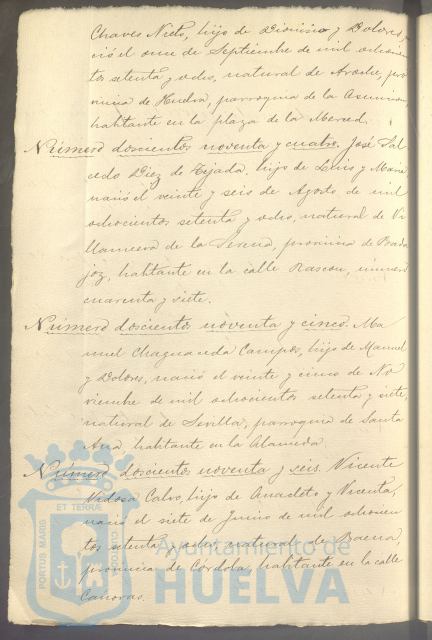 Chaves Nieto, hijo de Dionisio y Dolores,
ció el once de Septiembre de mil ochocien
tos setenta y ocho, natural de Aroche, pro
vincia de Huelva, parroquia de la Asunción,
habitante en la plaza de la Merced.
Número doscientos noventa y cuatro. José Sal
cedo Diez de Tejada, hijo de Luis y Maria
nació el veinte y seis de Agosto de mil
ochocientos setenta y ocho, natural de Vi
llanueva de la Serena, provincia de Bada
joz, habitante en la calle Rascon, número
cuarenta y siete.
Número doscientos noventa y cinco. Ma
nuel Chaguaceda Campos, hijo de Manuel
y Dolores, nació el veinte y cinco de No
viembre de mil ochocientos setenta y siete,
natural de Sevilla, parroquia de Santa
Ana habitante en la Alameda.
Número doscientos noventa y seis. Vicente
Calvo, hijo de Anacleto y Vicenta,
nació el siete de Junio de mil ochocien
tos setenta y ocho natural de Baena,
provincia de Córdoba, habitante en la calle
Canovas.
ET TERRÆ
PORTUS MARIS
CUSTODIA
Ayuntamiento de
HUELVA